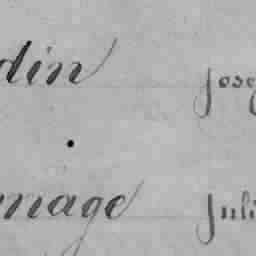 din Jose
mage Juli